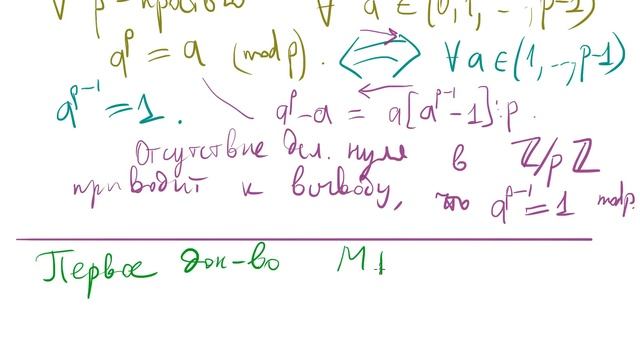 ∀ p - простого ∀ a ∈ (0, 1, ..., p-1)
a^p = a (mod p). ⟺ ∀ a ∈ (1, ..., p-1)
a^{p-1} = 1. a^p - a = a[a^{p-1} - 1] ⋮ p.
Отсутствие дел. нуля в ℤ/pℤ
приводит к выводу, что a^{p-1} = 1 mod p.
Первое док-во М